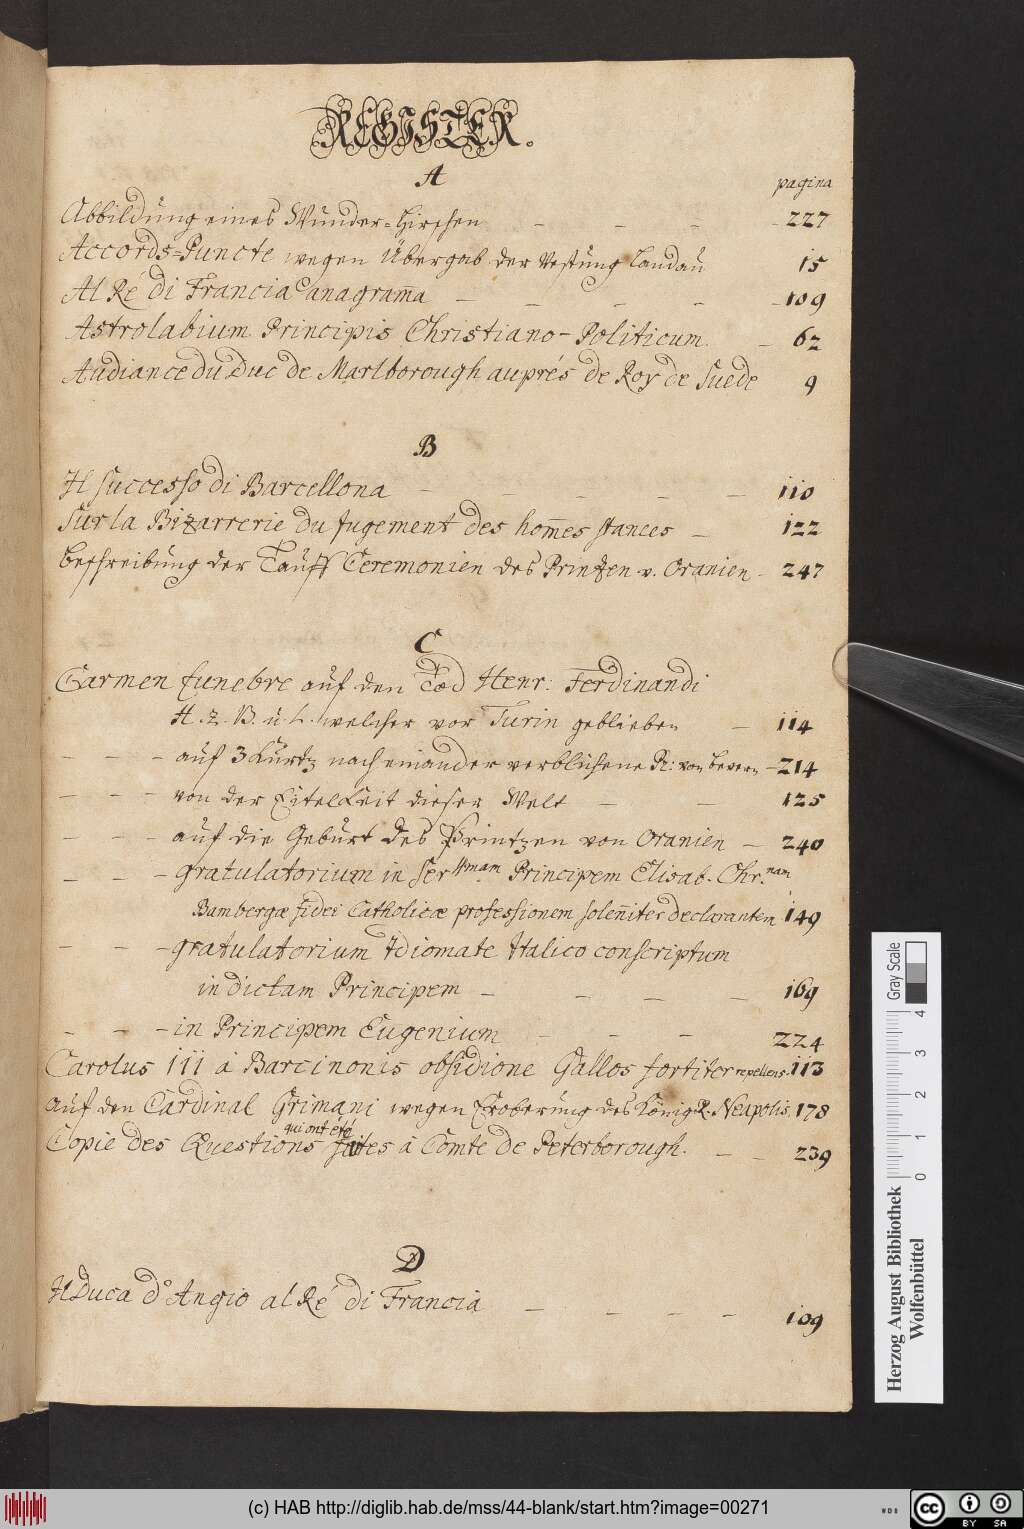 REGISTER.
A
pagina
Abbildung eines Wunder=Hirschen - - - - 227
Accords=Puncte wegen Übergab der Vestung Landau 15
Al Ré di Francia anagram̄a - - - - - 109
Astrolabium Principis Christiano-Politicum. - 62
Audiance du Duc de Marlborough auprés de Roy de Suede 9
B
Il successo di Barcellona - - - - - 110
Sur la Bizarrerie du Jugement des hom̄es stances - 122
Beschreibung der Tauff Ceremonien des Printzen v. Oranien - 247
C
Carmen funebre auf den Tod Henr: Ferdinandi
H. z. B. u. L. welcher vor Turin geblieben - 114
- - - auf 3 Kurtz nach einander verblichene R: von Bevern - 214
- - - von der Eitelkeit dieser Welt - - 125
- - - auf die Geburt des Printzen von Oranien - 240
- - - gratulatorium in Ser ssmam Principem Elisab. Chr. nam
Bambergæ fidei Catholicæ professionem solen̄iter declarantem 149
- - - gratulatorium Idiomate Italico conscriptum
in dictam Principem - - - - 169
- - - in Principem Eugenium - - - 224
Carolus III à Barcinonis obsidione Gallos fortiter repellens. 113
auf den Cardinal Grimani wegen Eroberung des König R. Neapolis. 178
qui ont eté
Copie des Questions faites à Comte de Peterborough. - - 239
D
Il Duca d'Angio al Ré di Francia - - - - 109
Gray Scale
0 1 2 3 4
Herzog August Bibliothek
Wolfenbüttel
(c) HAB http://diglib.hab.de/mss/44-blank/start.htm?image=00271
WDB
cc
BY SA